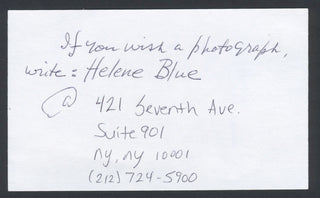 If you wish a photograph,
write: Helene Blue
@ 421 Seventh Ave.
Suite 901
NY, NY 10001
(212) 724-5900